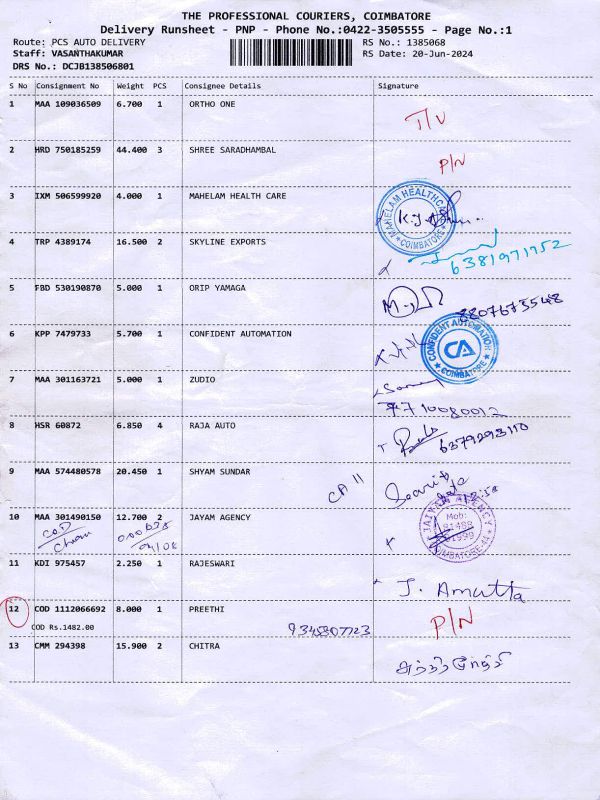 THE PROFESSIONAL COURIERS, COIMBATORE
Delivery Runsheet - PNP - Phone No.:0422-3505555 - Page No.:1
Route: PCS AUTO DELIVERY RS No.: 1385068
Staff: VASANTHAKUMAR RS Date: 20-Jun-2024
DRS No.: DCJB138506801
S No Consignment No Weight PCS Consignee Details Signature
1 MAA 109036509 6.700 1 ORTHO ONE
T/V
2 HRD 750185259 44.400 3 SHREE SARADHAMBAL
P/N
3 IXM 506599920 4.000 1 MAHELAM HEALTH CARE
MAHELAM HEALTHCARE
COIMBATORE
4 TRP 4389174 16.500 2 SKYLINE EXPORTS
6381971752
5 FBD 530190870 5.000 1 ORIP YAMAGA
8807675548
6 KPP 7479733 5.700 1 CONFIDENT AUTOMATION
CONFIDENT AUTOMATION
CA
COIMBATORE
7 MAA 301163721 5.000 1 ZUDIO
7710080012
8 HSR 60872 6.850 4 RAJA AUTO
6379293110
9 MAA 574480578 20.450 1 SHYAM SUNDAR
10 MAA 301490150 12.700 2 JAYAM AGENCY
COD 000638
JAIYAM AGENCY
Mob:
COIMBATORE-44
11 KDI 975457 2.250 1 RAJESWARI
J. Amutta
12 COD 1112066692 8.000 1 PREETHI
P/N
COD Rs.1482.00 9345307723
13 CMM 294398 15.900 2 CHITRA